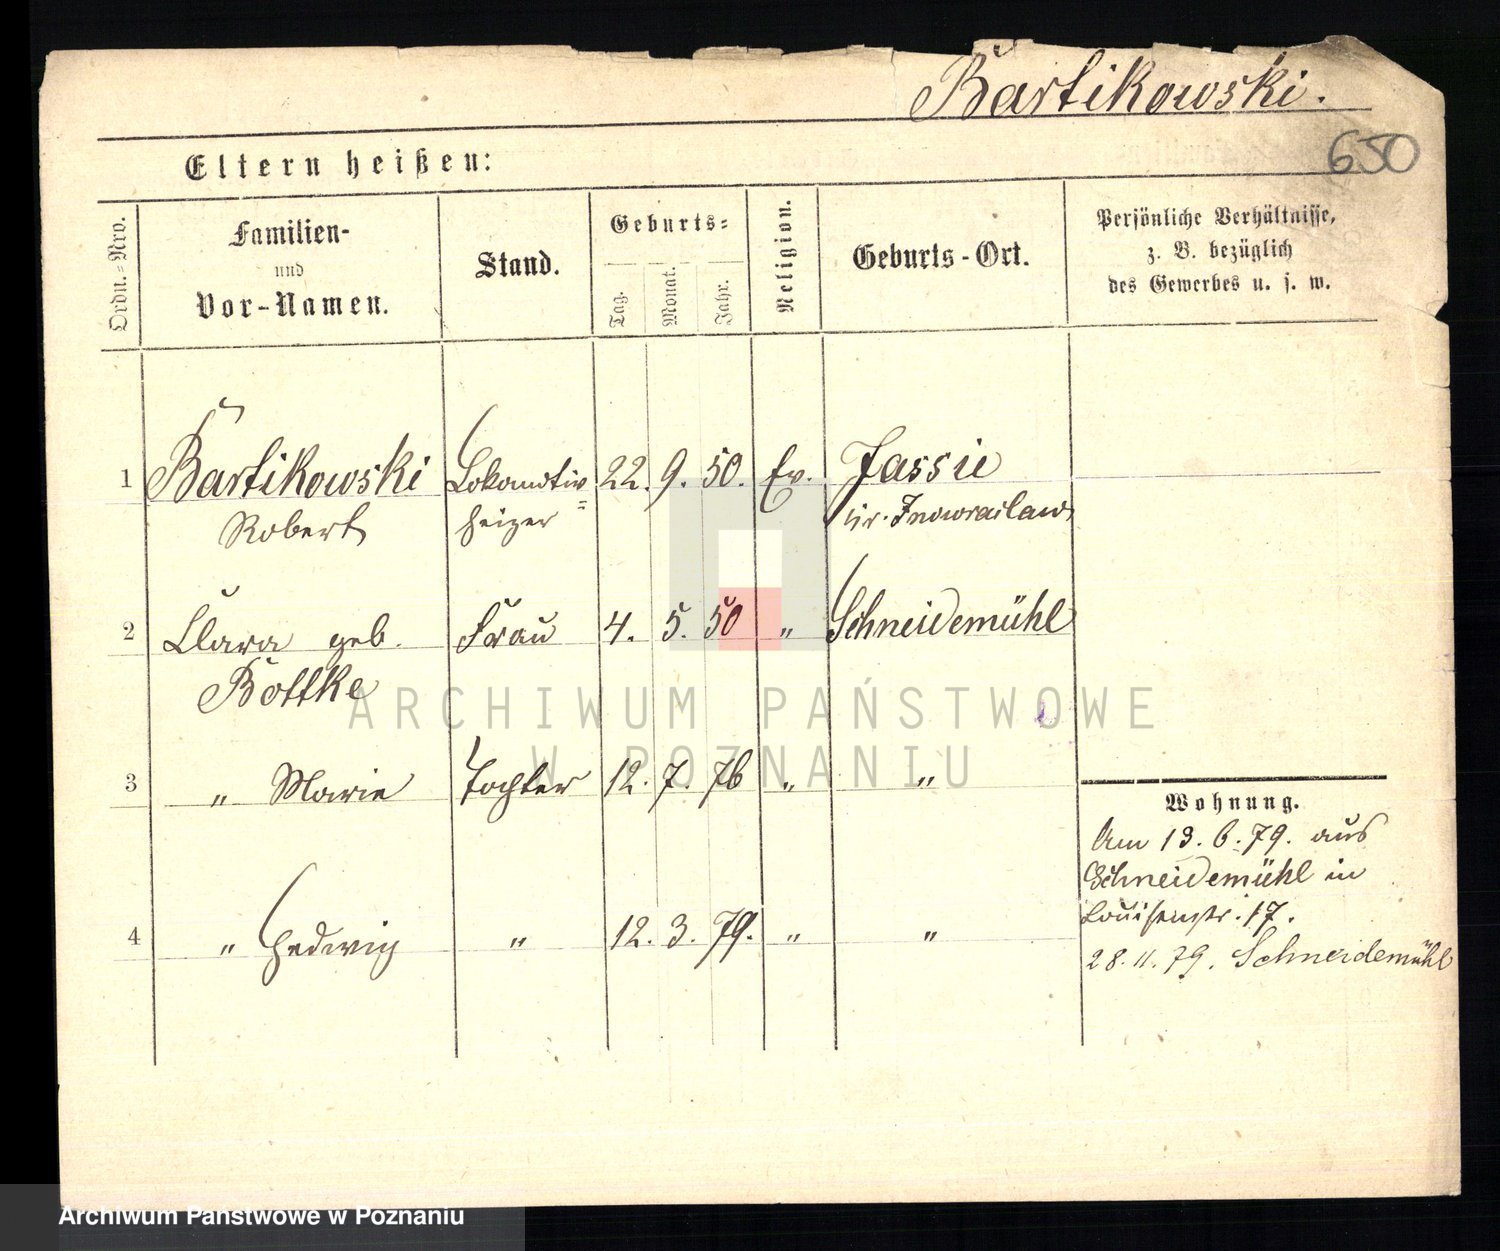 Bartikowski.
650
Eltern heißen:
Ordn.=Nro.
Familien-
und
Vor-Namen.
Stand.
Geburts=
Tag.
Monat.
Jahr.
Religion.
Geburts-Ort.
Persönliche Verhältnisse,
z. B. bezüglich
des Gewerbes u. s. w.
1 Bartikowski Lokomotiv 22. 9. 50. Ev. Jassie
Robert heizer Kr. Inowraclaw
2 Clara geb. Frau 4. 5. 50 " Schneidemühl
Bottke
3 " Marie Tochter 12. 7. 76 " "
4 " Hedwig " 12. 3. 79. " "
Wohnung.
Am 13. 6. 79. aus
Schneidemühl in
Louisenstr. 17.
28. 11. 79. Schneidemühl
ARCHIWUM PAŃSTWOWE
W POZNANIU
Archiwum Państwowe w Poznaniu